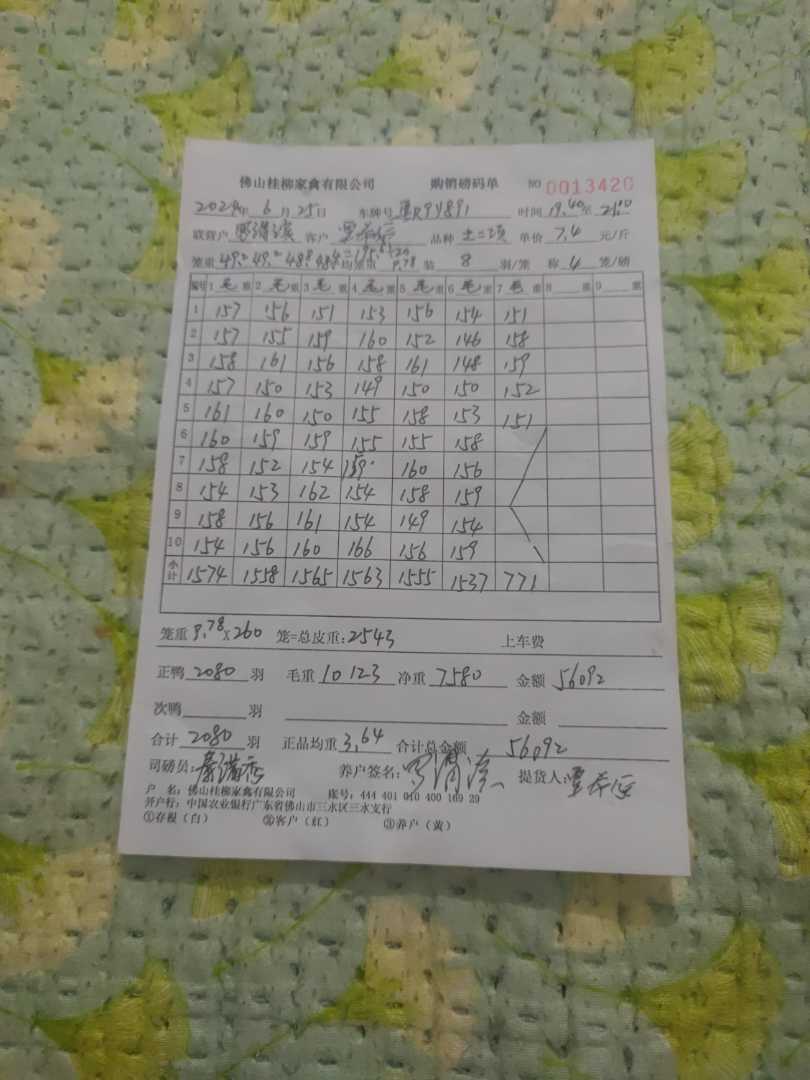 佛山桂柳家禽有限公司 购销磅码单 NO 0013420
2024年 6月 25日 车牌号 R94891 时间 19.40 至 21.00
联营户 客户 品种 土二 单价 7.4 元/斤
笼重 49.0 49.0 均笼重 9.78 装 8 羽/笼 称 4 笼/磅
编号 1 毛重 2 毛重 3 毛重 4 毛重 5 毛重 6 毛重 7 毛重 8 重 9 重
1 157 156 151 153 156 154 151
2 157 155 159 160 152 146 158
3 158 161 156 158 161 148 159
4 157 150 153 149 150 150 152
5 161 160 150 155 158 153 151
6 160 159 159 155 155 158
7 158 152 154 159 160 156
8 154 153 162 154 158 159
9 158 156 161 154 149 154
10 154 156 160 166 156 159
小计 1574 1558 1565 1563 1555 1537 771
笼重 9.78 x 260 笼=总皮重: 2543 上车费
正鸭 2080 羽 毛重 10123 净重 7580 金额 56092
次鸭 羽 金额
合计 2080 羽 正品均重 3.64 合计总金额 56092
司磅员: 养户签名: 提货人:
户 名: 佛山桂柳家禽有限公司 账号: 444 401 010 400 169 29
开户行: 中国农业银行广东省佛山市三水区三水支行
①存根(白) ②客户(红) ③养户(黄)